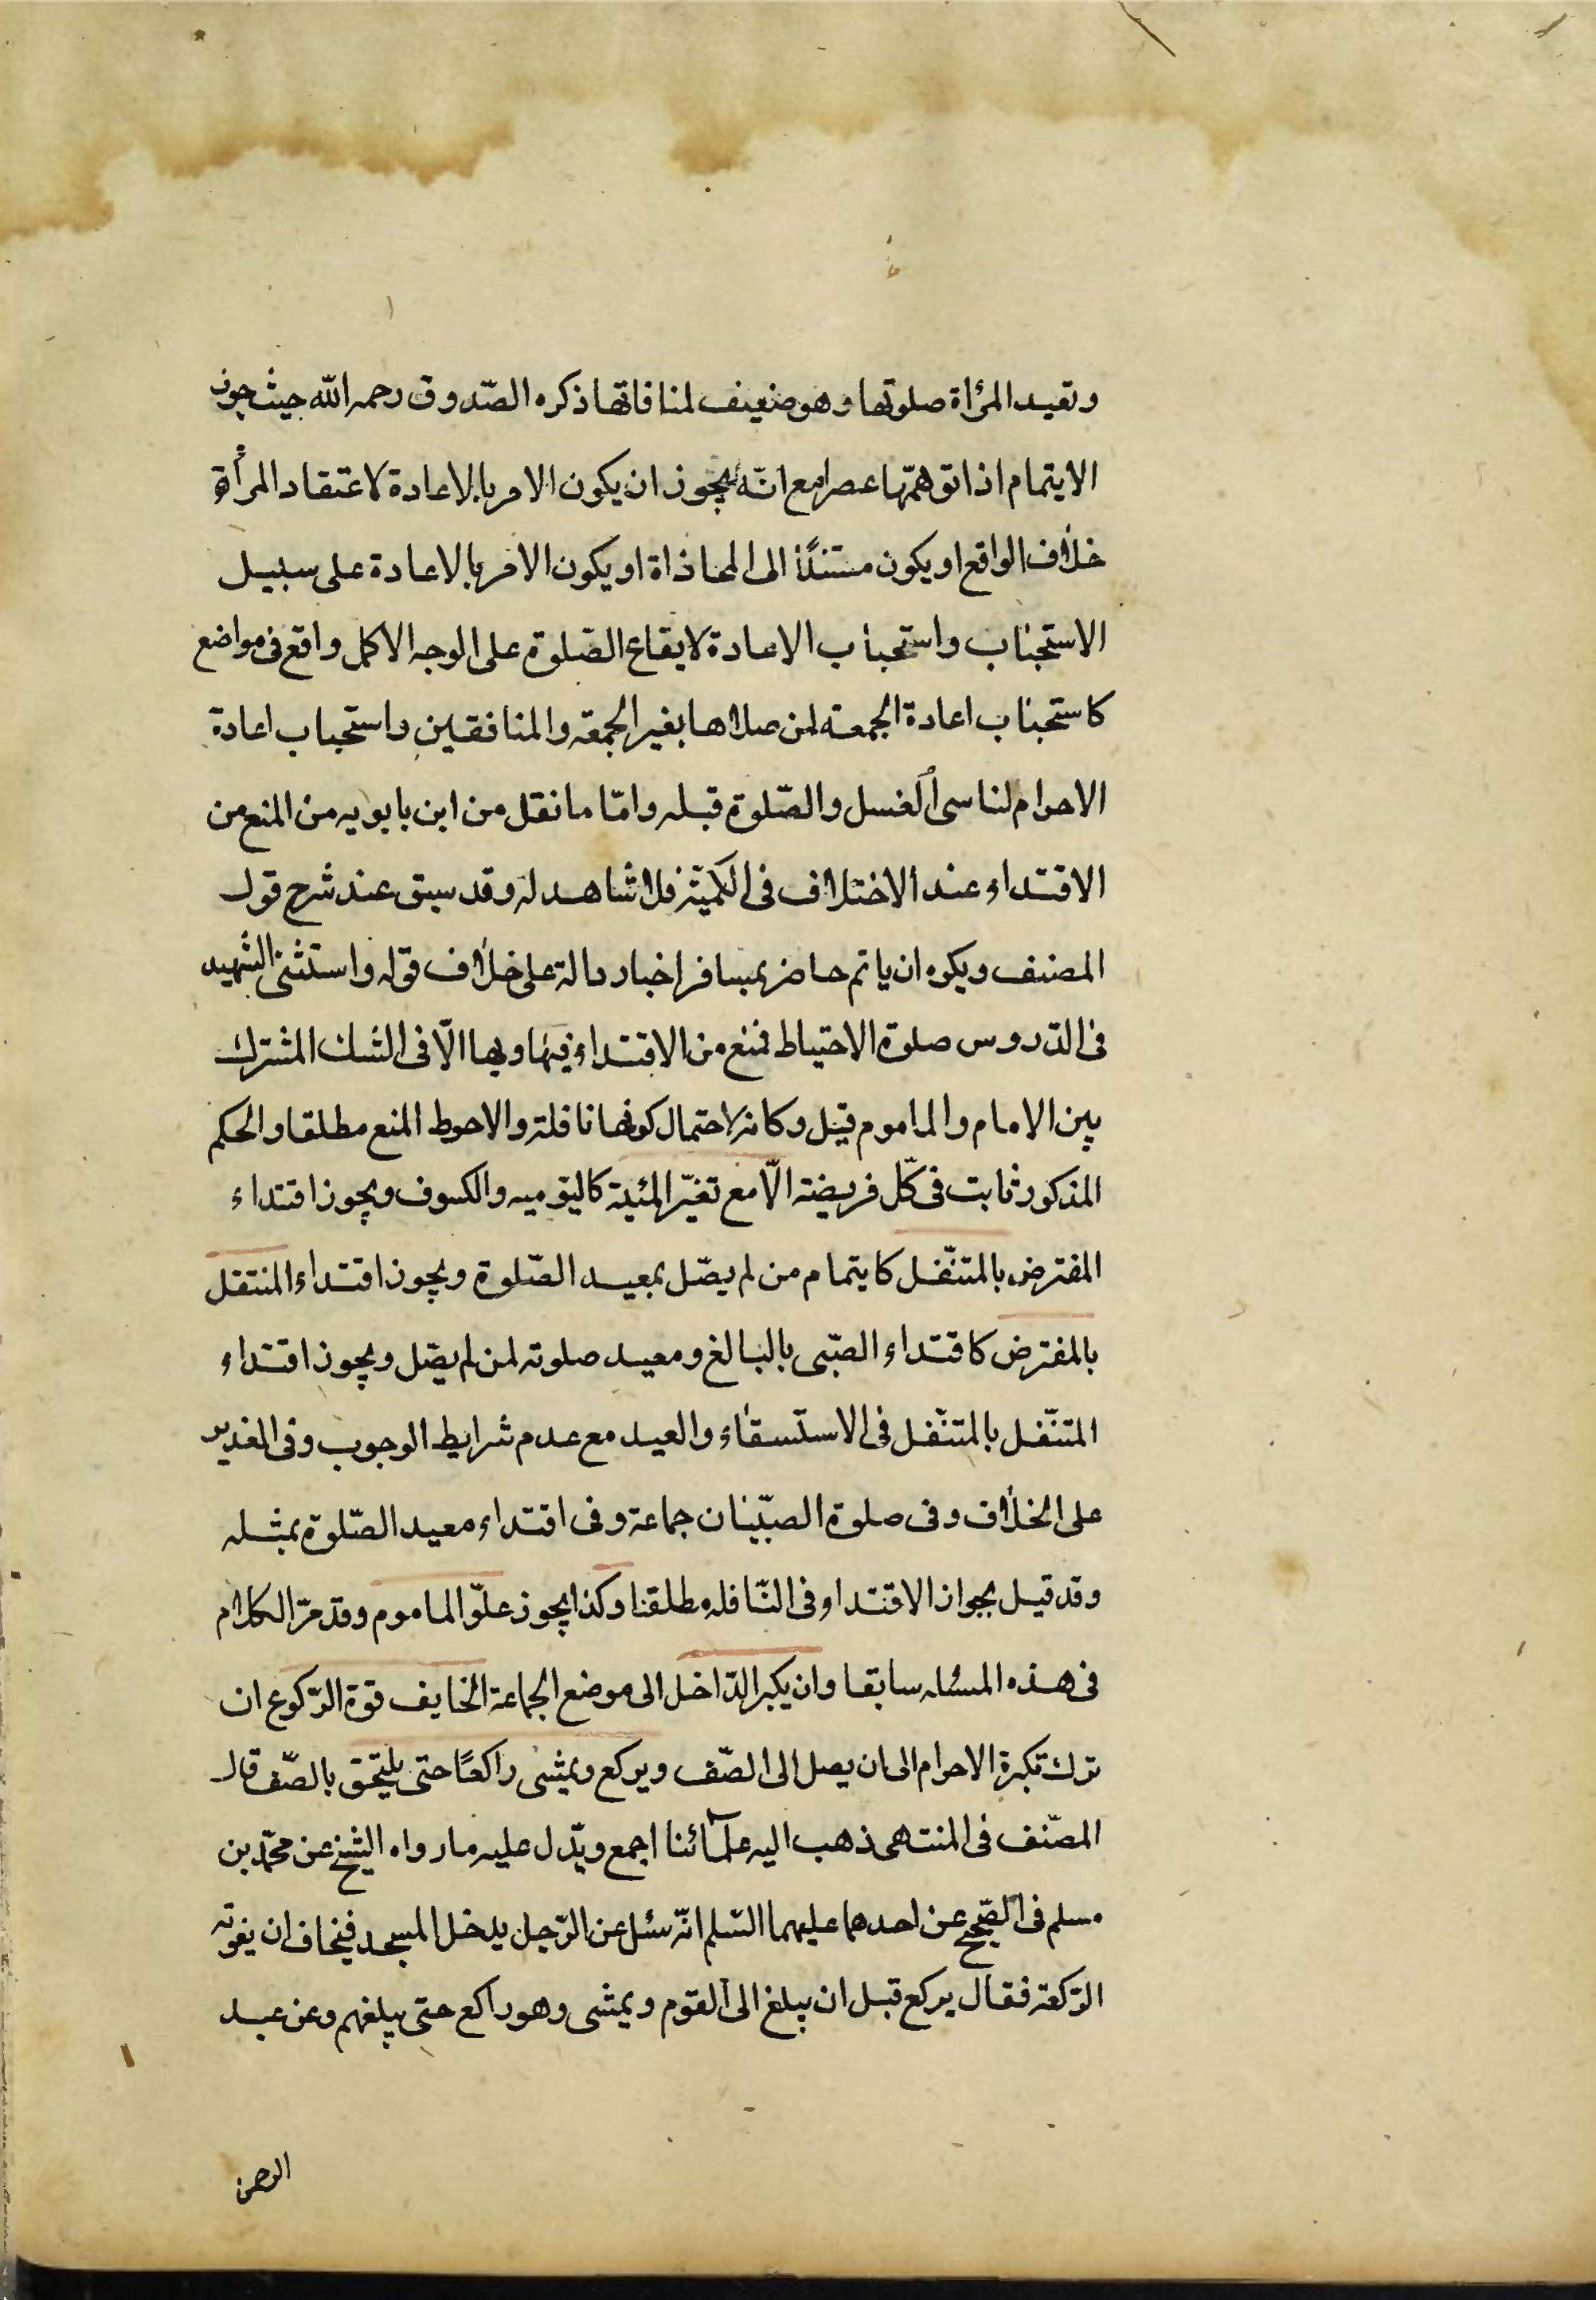 وتعيد المرأة صلوتها وهو ضعيف لمنافاتها ذكره الصّدوق رحمه الله حيث جوز
الايتمام اذا توهمّها عصرا مع انّه يجوز ان يكون الامر بالاعادة لاعتقاد المرأة
خلاف الواقع او يكون مستندًا الى المحاذاة او يكون الامر بالاعادة على سبيل
الاستحباب واستحباب الاعادة لايقاع الصّلوة على الوجه الاكمل واقع فى مواضع
كاستحباب اعادة الجمعة لمن صلاها بغير الجمعة والمنافقين واستحباب اعادة
الاحرام لناسى الغسل والصّلوة قبله وامّا ما نقل من ابن بابويه من المنع من
الاقتداء عند الاختلاف فى الكميّة فلا شاهد له وقد سبق عند شرح قول
المصنف ويكره ان ياتم حاضر بمسافر اخبار دالة على خلاف قوله واستثنى الشهيد
فى الدّروس صلوة الاحتياط فمنع من الاقتداء فيها وبها الّا فى الشك المشترك
بين الامام والماموم قيل وكانه لاحتمال كونها نافلة والاحوط المنع مطلقا والحكم
المذكور ثابت فى كلّ فريضة الّا مع تغيّر الهيئة كاليوميه والكسوف ويجوز اقتداء
المفترض بالمتنفّل كايتمام من لم يصّل بمعيد الصّلوة ويجوز اقتداء المنتقل
بالمفترض كاقتداء الصّبى بالبالغ ومعيد صلوته لمن لم يصّل ويجوز اقتداء
المتنّفل بالمتنّفل فى الاستسقاء والعيد مع عدم شرايط الوجوب وفى الغدير
على الخلاف وفى صلوة الصبّيان جماعة وفى اقتداء معيد الصّلوة بمثله
وقد قيل بجواز الاقتداء فى النّافله مطلقا وكذا يجوز علوّ الماموم وقد مرّ الكلام
فى هذه المسئله سابقا وان يكبر الدّاخل الى موضع الجماعة الخايف فوة الرّكوع ان
ترك تكبرة الاحرام الى ان يصل الى الصّف ويركع ويمشى راكعًا حتى يلتحق بالصّف قال
المصّنف فى المنتهى ذهب اليه علمآئنا اجمع ويدّل عليه ما رواه الشيخ عن محمّد بن
مسلم فى الصّحيح عن احدهما عليهما السّلم انّه سئل عن الرّجل يدخل المسجد فيخاف ان يفوته
الرّكعة فقال يركع قبل ان يبلغ الى القوم ويمشى وهو راكع حتى يبلغهم وعن عبد
الرحمن